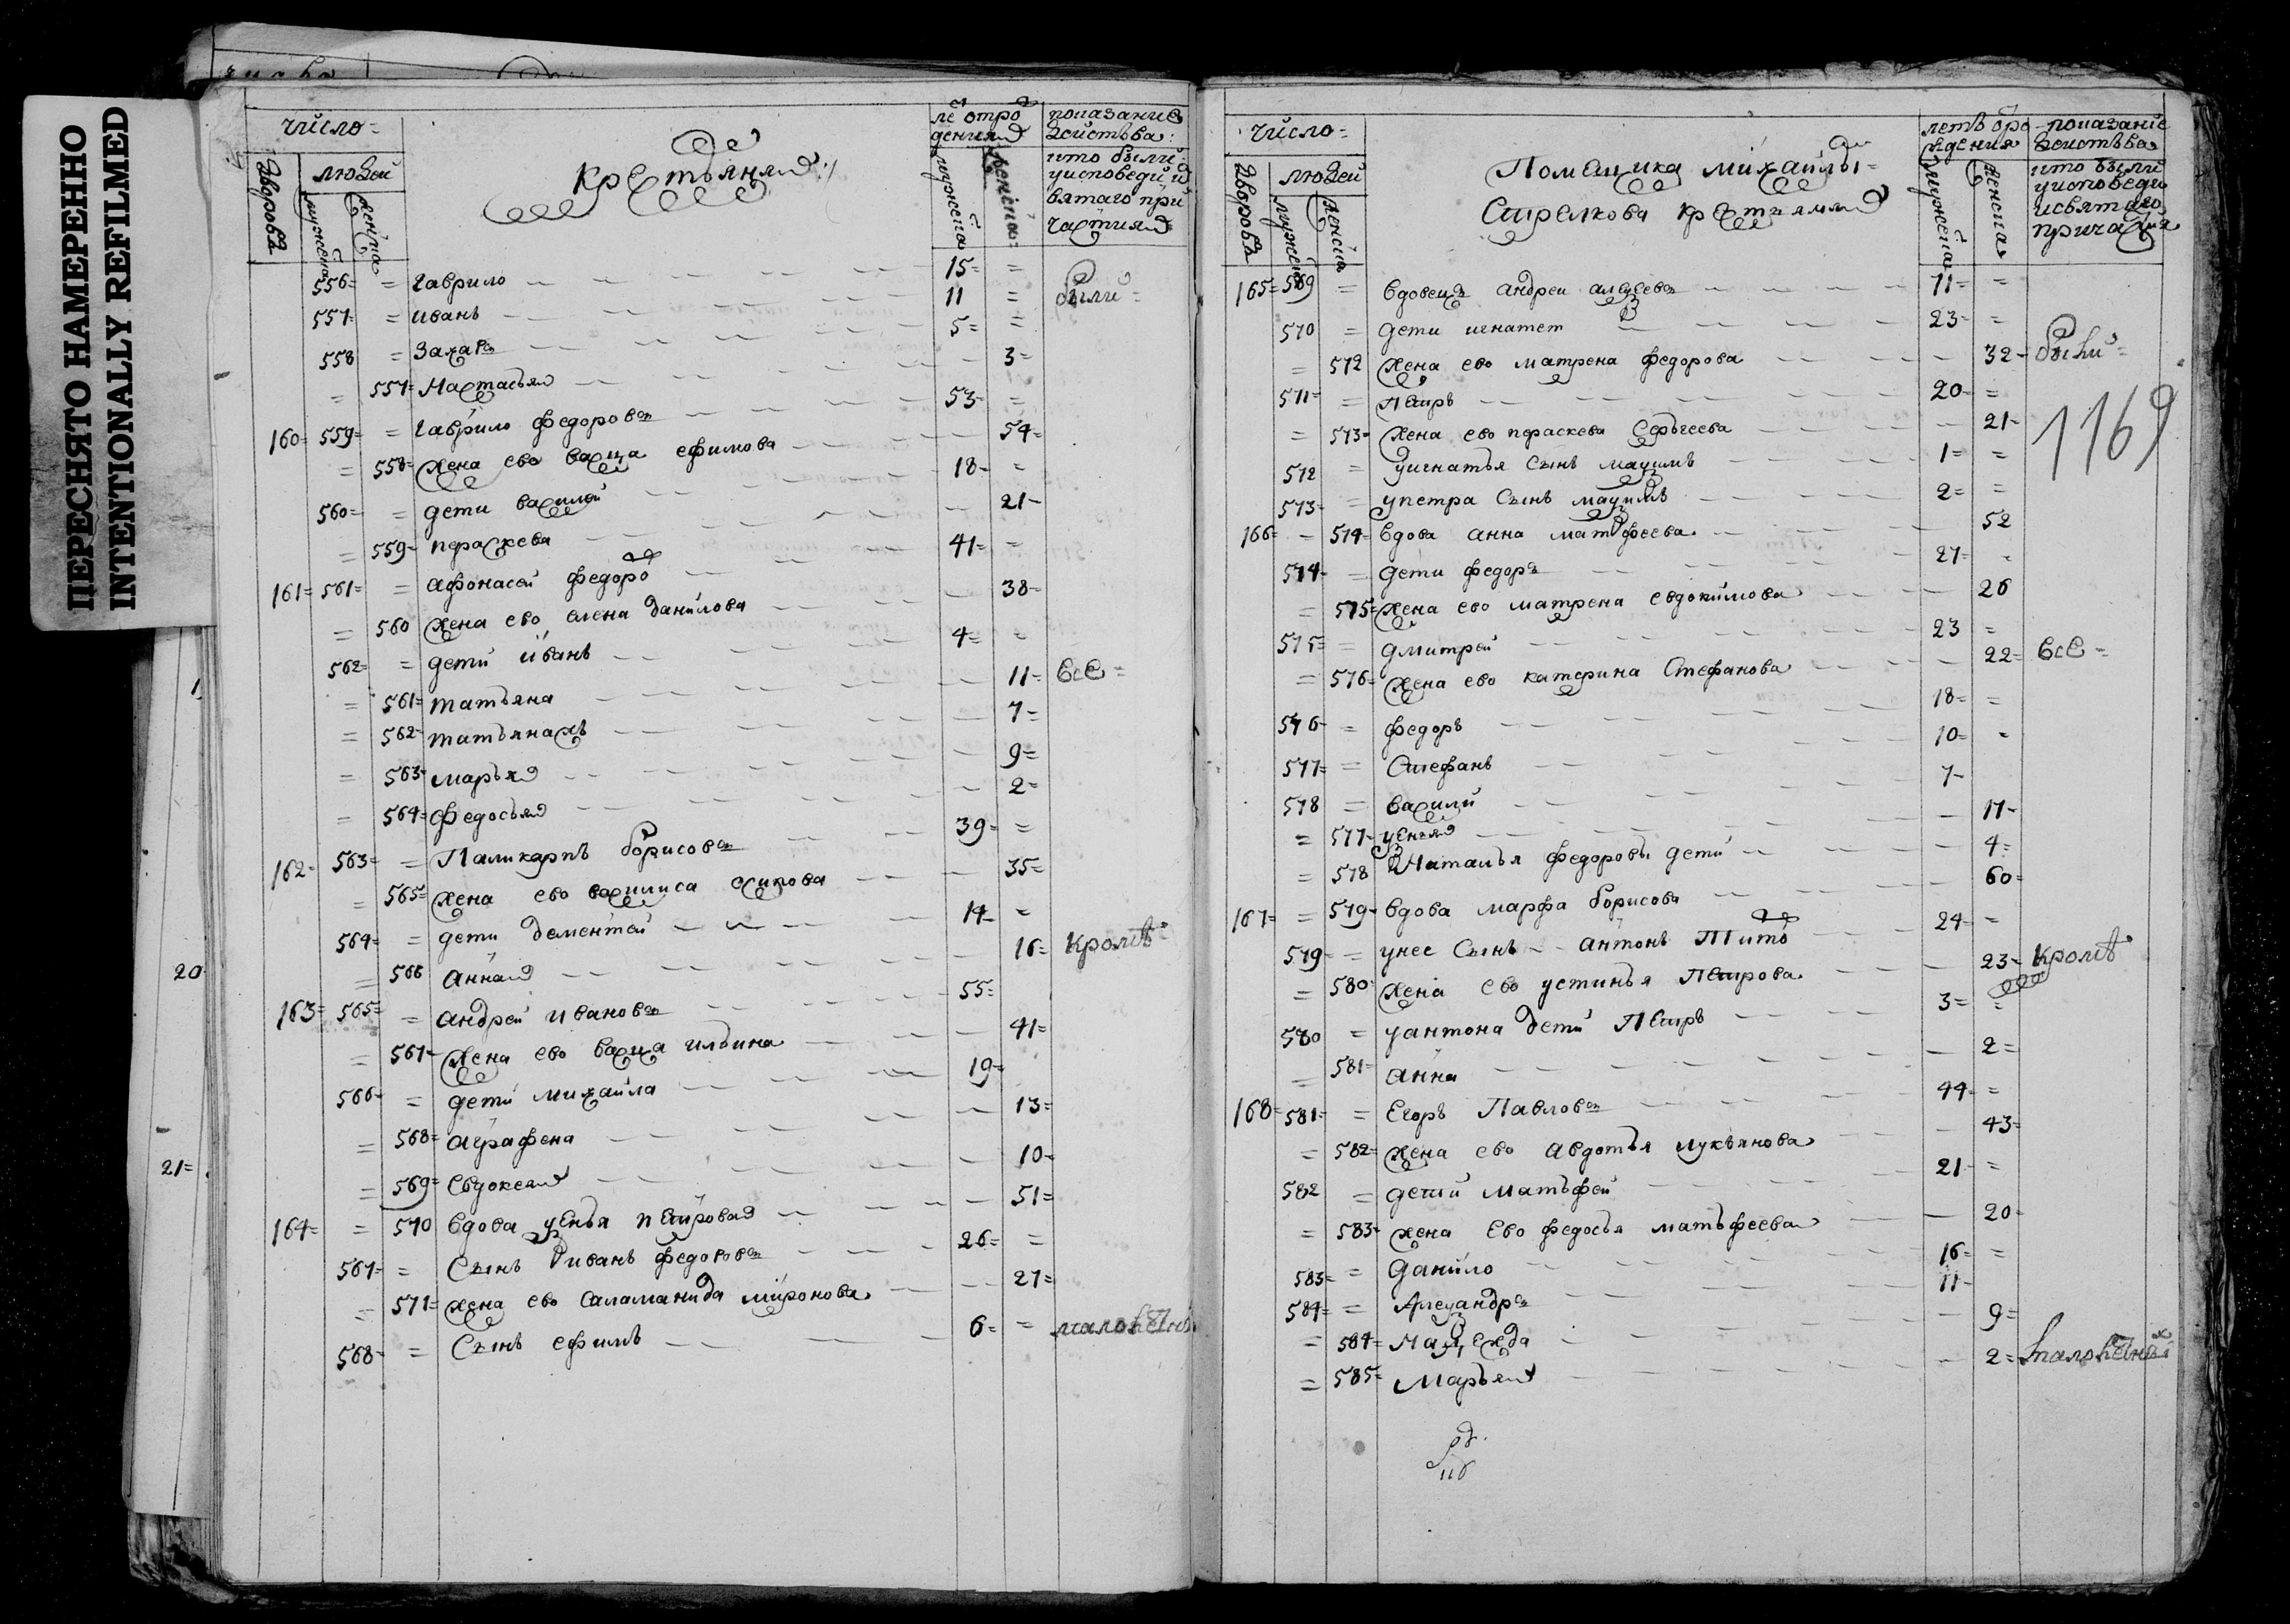 ПЕРЕСНЯТО НАМЕРЕННО
INTENTIONALLY REFILMED
число=
людей
дворовъ
мужеска
женска
крестьяня
мужеска
женска
показание
действа:
што были
вятаго при
частия
556= = гаврило 15= =
557= = иванъ 11 = были=
558 = Захаръ 5= =
= 557= Настасья 3=
160= 559= = гаврило федоровъ 53= =
= 558= жена ево васса ефимова 54=
560= = дети василей 18- =
= 559- параскева 21-
161= 561= = афонасей федоро 41= =
= 560 жена ево алена данилова 38=
562= = дети иванъ 4= =
= 561= татьяна 11= все=
= 562- татьянажъ 7=
= 563- марья 9=
= 564= федосья 2=
162- 563= = Паликарпъ борисовъ 39- =
= 565= жена ево василиса осипова 35=
564= = дети дементей 14- =
= 566 анна 16= кроме
163= 565= = андрей ивановъ 55=
= 567- жена ево васса ильина 41=
566- = дети михайла 19=
= 568= аграфена 13=
= 569= Евдокея 10=
164= = 570 вдова ксенья петрова 51=
567= = Сынъ иванъ федоровъ 26= =
= 571= жена ево саламанида миронова 27=
568- = Сынъ ефимъ 6= = малолетны
1
20
21=
число=
людей
дворовъ
мужеска
женска
Помещика михайлы
Стрелкова крестьяня
летъ от ро
ждения
мужеска
женска
показание
действа
што были
у исповеди
и святаго
причастия
165= 569 = вдовецъ андреи алексеевъ 71= =
570 = дети игнатеи 23- =
= 572 жена ево матрена федорова 32- были=
1169
571= = Петръ 20- =
= 573= жена ево параскева Сергеева 21-
572 = у игнатья сынъ максимъ 1= =
573- = у петра Сынъ максимъ 2= =
166= = 574= Вдова анна матфеева 52
574- = дети федоръ 27= =
= 575= жена ево матрена евдокимова 26
575= = дмитрей 23 =
= 576= жена ево катерина Стефанова 22= все=
576- = федоръ 18= =
577= = Стефанъ 10= =
578 = василй 7-
= 577- ксенья 17-
= 578 Наталья федоровы дети 4=
167= = 579- вдова марфа борисова 60=
579- = у нее Сынъ антонъ Тито 24- =
= 580= жена ево устинья Петрова 23- кроме
580 = у антона дети Петръ 3= =
= 581= анна 2=
168= 581= = Егоръ Павловъ 44- =
= 582= жена ево авдотья лукьянова 43=
582 = дети матьфей 21- =
= 583= жена Ево федосья матьфеева 20-
583= = данило 16= =
584= = Александръ 11-
= 584= Надежда 9=
= 585= Марья 2= малолетны